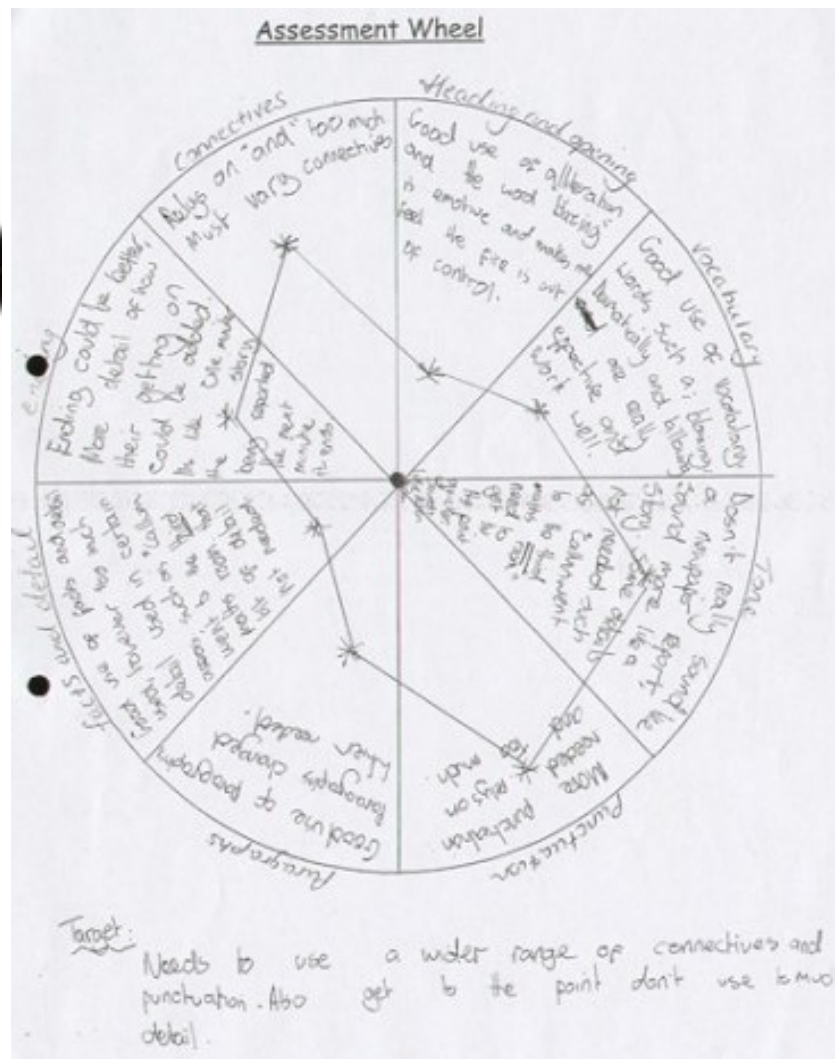 Assessment Wheel
Connectives
Relys on "and" too much
Must vary connectives
Heading and opening
Good use of alliteration
and the word "blazing"
is emotive and makes me
feel the fire is out
of control.
Vocabulary
Good use of vocabulary
words such as; blazing,
Dramatically and billowing
are really
effective and
work well.
Tone
Doesn't really sound like
a newspaper report,
sound more like a
story. Some details
not needed such
as
to be
need to get
Punctuation
More punctuation
needed relys on
and too
much.
Paragraphs
Good use of paragraphs
Paragraphs changed
when needed.
facts and detail
Good use of facts and detail
used, however too much
detail used in certain
areas, such as
went to the
maths room
bit of detail
Not needed
ending
Ending could be better,
More detail of how
their getting on
could be added.
Its like one minute
the story
being reported
the next
minute
it ends
Target:
Needs to use a wider range of connectives and
punctuation. Also get to the point don't use to much
detail.